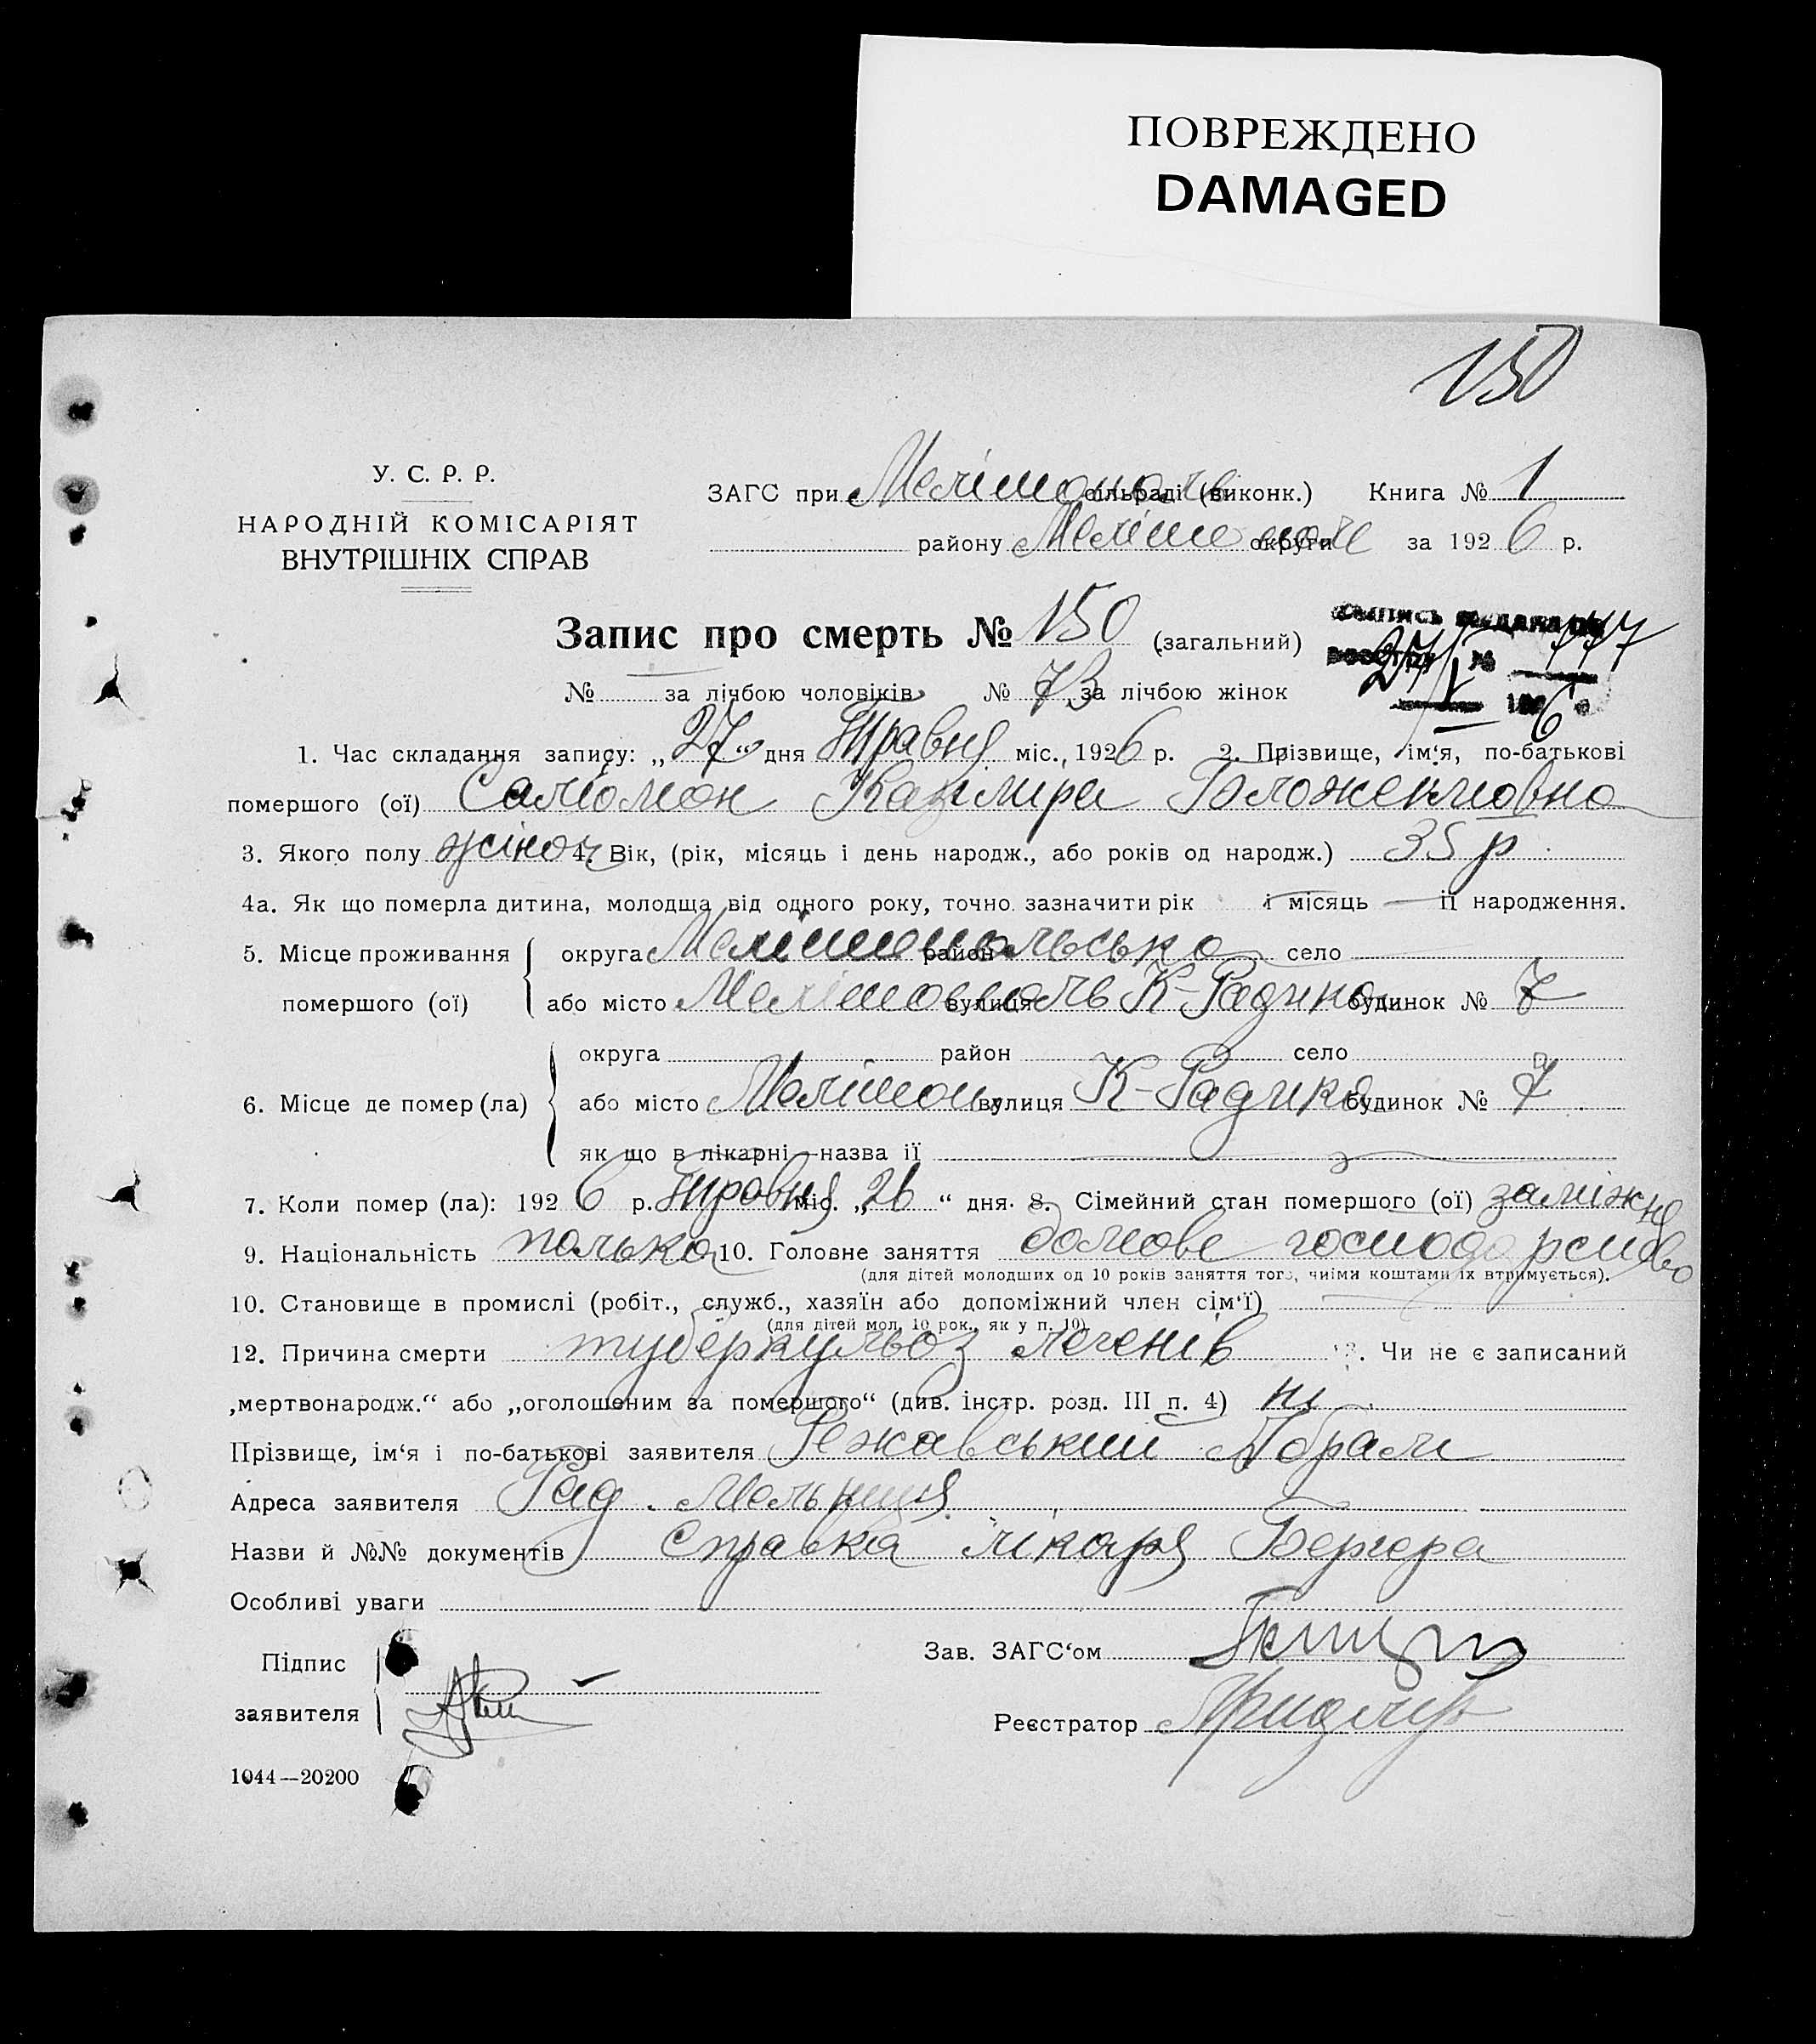 ПОВРЕЖДЕНО
DAMAGED
150
У. С. Р. Р.
НАРОДНІЙ КОМІСАРІЯТ
ВНУТРІШНІХ СПРАВ
ЗАГС при Мелітополь сільраді (виконк.) Книга № 1
району Мелітополь округи за 1926 р.
Запис про смерть № 150 (загальний)
выпись выдана
№ 777
27/V
6
№ — за лічбою чоловіків № 73 за лічбою жінок
1. Час складання запису: „27“ дня Травня міс., 1926 р. 2. Прізвище, ім‘я, по-батькові
помершого (ої) Казіміра
3. Якого полу жіноч 4. Вік, (рік, місяць і день народж., або років од народж.) 35 р
4а. Як що померла дитина, молодща від одного року, точно зазначити рік і місяць — її народження.
5. Місце проживання помершого (ої) округа Мелітопольська район село
або місто Мелітополь вулиця К-Радико будинок № 7
6. Місце де помер (ла) округа район село
або місто Мелітоп вулиця К-Радико будинок № 7
як що в лікарні—назва її
7. Коли помер (ла): 1926 р. Травня міс. „26“ дня. 8. Сімейний стан помершого (ої) заміжня
9. Національність полька 10. Головне заняття домове господарство
(для дітей молодших од 10 років заняття того, чиїми коштами їх втримується).
10. Становище в промислі (робіт., служб., хазяїн або допоміжний член сім‘ї)
(для дітей мол. 10 рок., як у п. 10)
12. Причина смерти туберкульоз легенів 13. Чи не є записаний
„мертвонародж.“ або „оголошеним за помершого“ (див. інстр. розд. III п. 4) ні
Прізвище, ім‘я і по-батькові заявителя Режавський Абрам
Адреса заявителя Рад. Мельниця
Назви й №№ документів Справка лікаря Бергера
Особливі уваги
Підпис заявителя
Зав. ЗАГС‘ом
Реєстратор
1044—20200